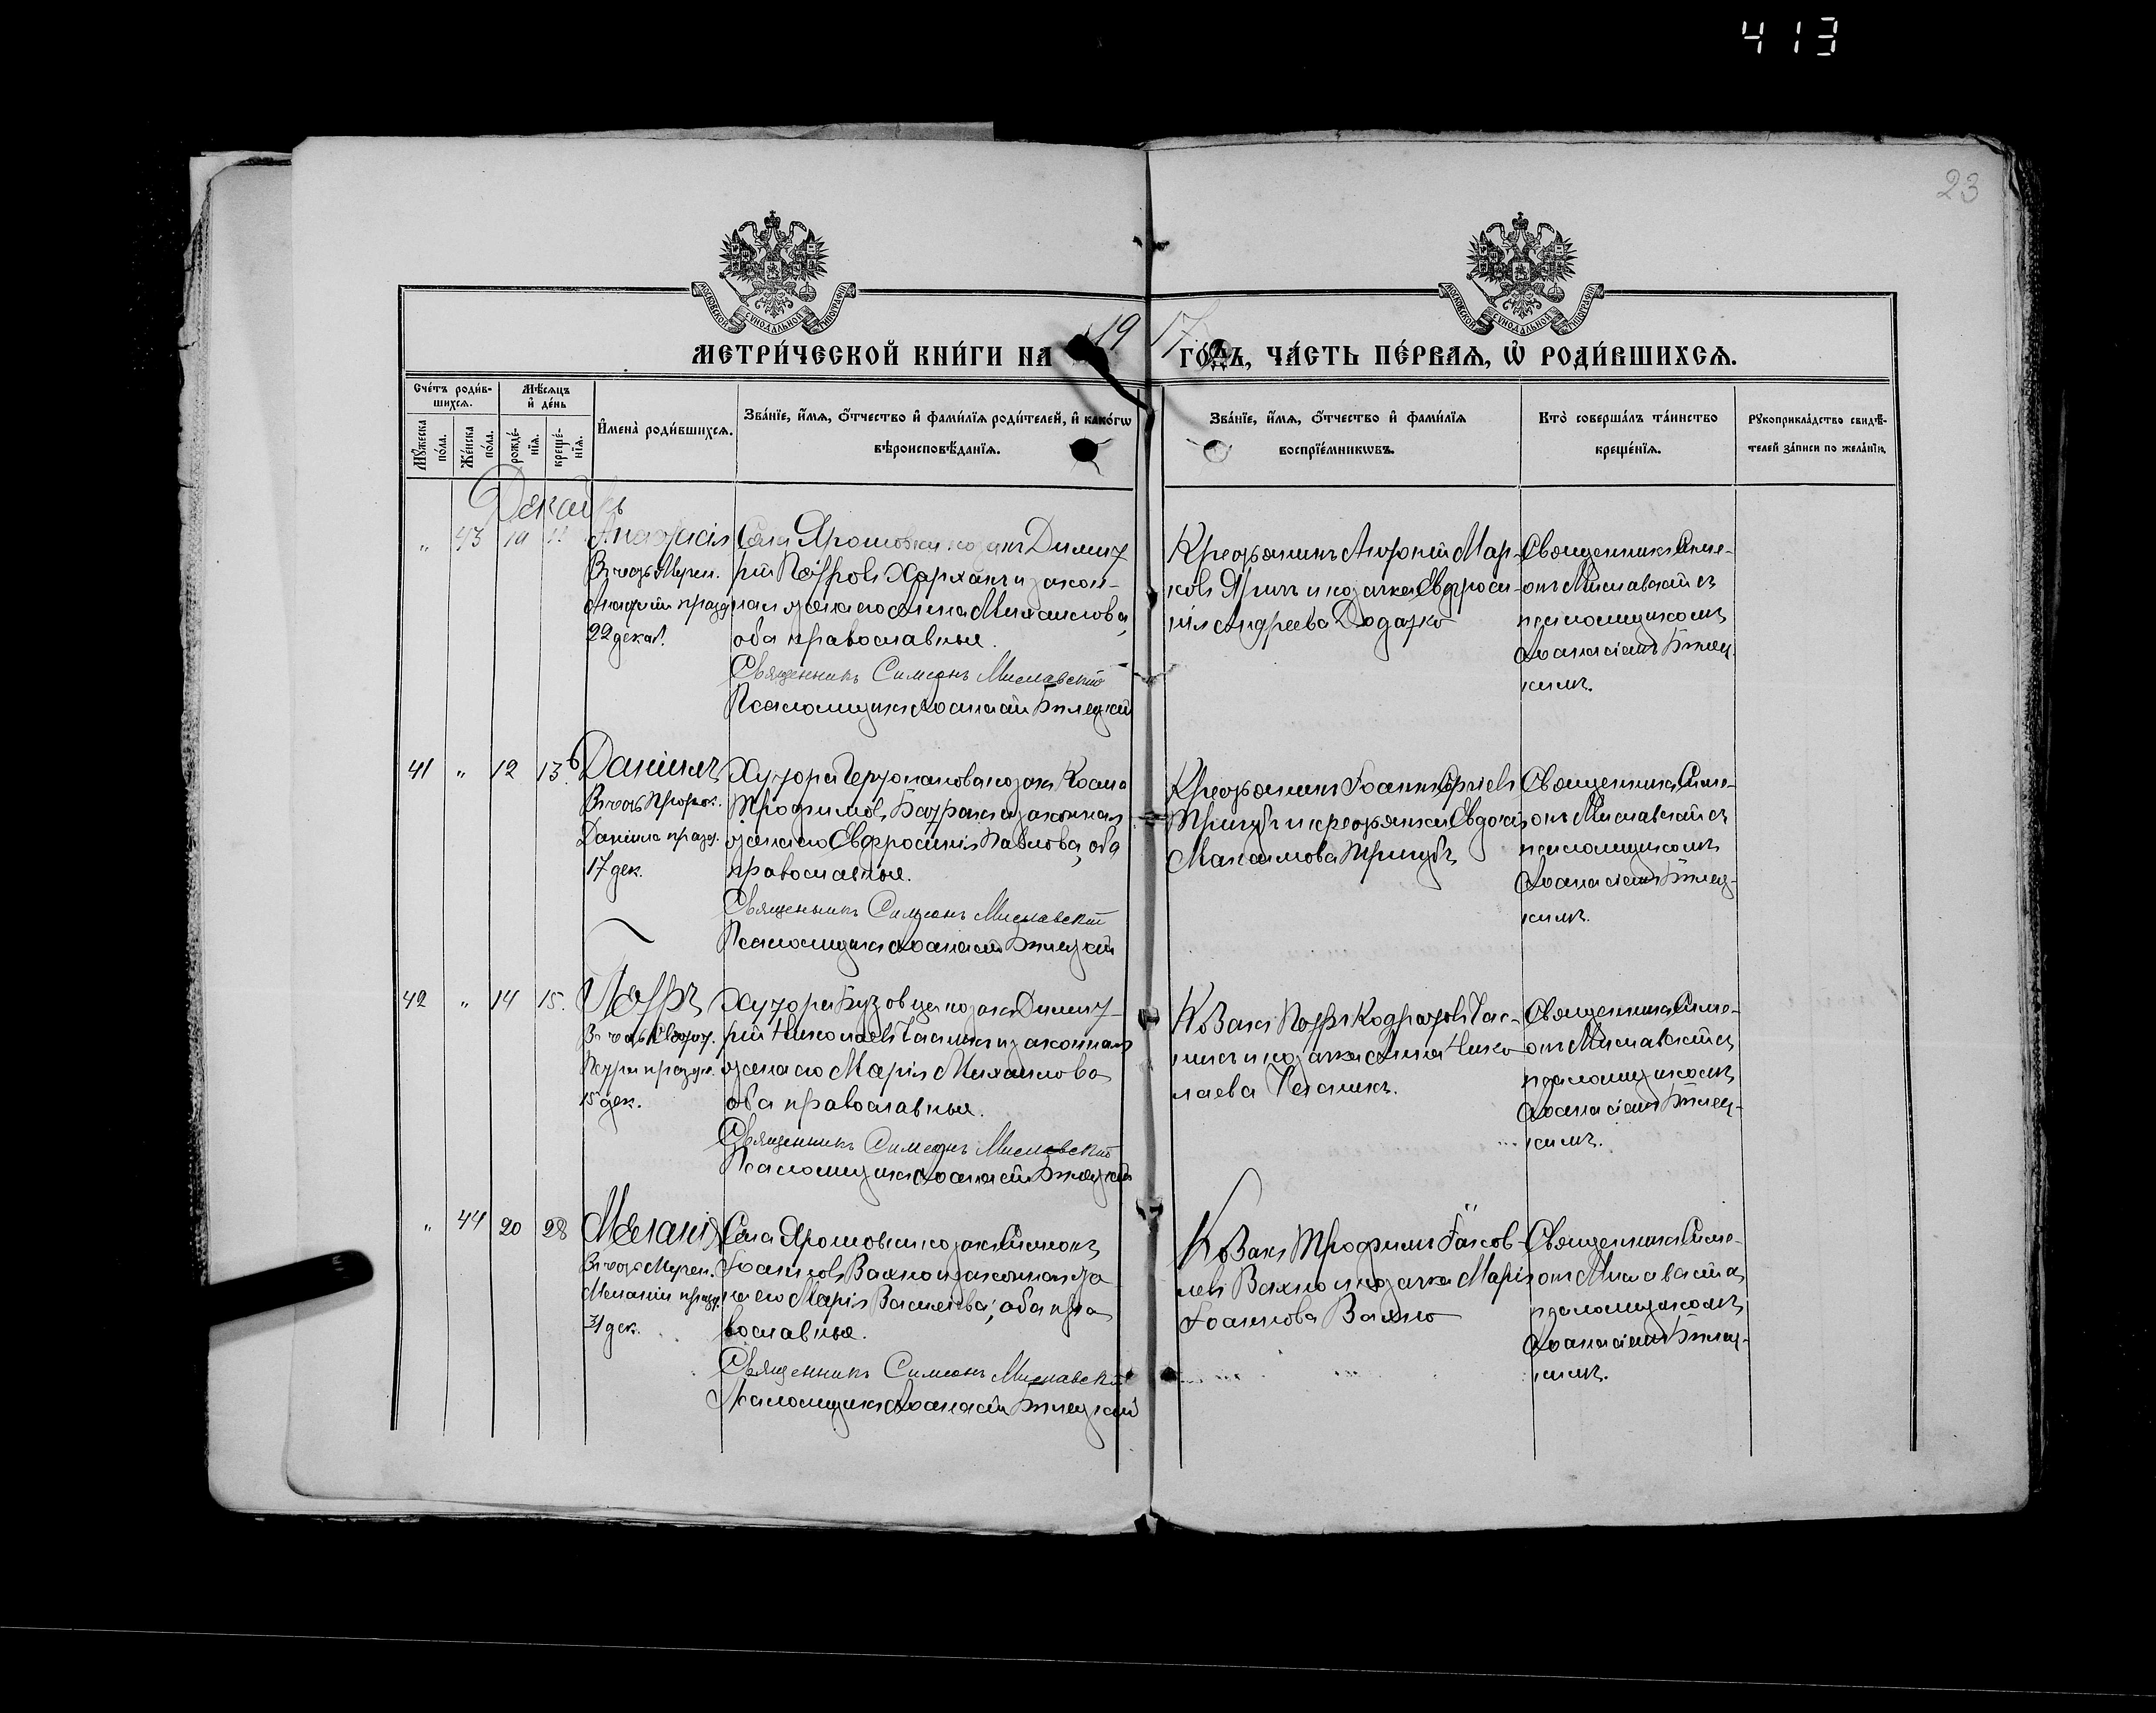 413
23
МОСКОВСКОЙ СѴНОДАЛЬНОЙ ТИПОГРАФІИ
МОСКОВСКОЙ СѴНОДАЛЬНОЙ ТИПОГРАФІИ
МЕТРИ́ЧЕСКОЙ КНИ́ГИ НА 1917 ГО́ДЪ, ЧА́СТЬ ПЕ́РВАЯ, Ѡ҆ РОДИ́ВШИХСЯ.
Сче́тъ роди́в-
шихся.
Мѣ́сяцъ
и҆ де́нь
Мꙋ́жеска
по́ла.
Же́нска
по́ла.
рожде́-
нїя.
креще́-
нїя.
И҆мена̀ роди́вшихся.
Зва́нїе, и҆́мя, ѻ҆́тчество и҆ фами́лїя роди́телей, и҆ како́гѡ
вѣроисповѣ́данїя.
Зва́нїе, и҆́мя, ѻ҆́тчество и҆ фами́лїя
воспрїе́мникѡвъ.
Кто̀ соверша́лъ та́инство
креще́нїя.
Рꙋкоприкла́дство свидѣ́-
телей за́писи по жела́нїю.
Декабрь
" 43 10 11 Анастасія
В честь Мучен.
Анастасіи празд
22 декаб.
Села Ярошовки козакъ Димит
рій Петровъ Харханъ и закон-
ная жена его Анна Михаилова,
оба православные.
Священникъ Симеонъ Миславскій
Псаломщикъ Аѳанасій Билецкій
Крестьянинъ Андрей Мар-
ковъ Ярич и козачка Евфроси-
нія Андреева Додатко
Священникъ Симе-
онъ Миславскій съ
псаломщикомъ
Аѳанасіемъ Билец-
кимъ.
41 " 12 13 Даніилъ
В честь Пророк.
Даніила празд.
17 дек.
Хутора козакъ Косма
Трофимовъ Батракъ и законная
жена его Евфросинія Павлова, оба
православные.
Священникъ Симеонъ Миславскій
Псаломщикъ Аѳанасій Билецкій
Крестьянинъ Іоаннъ
Тригубъ и крестьянка Евдокія
Максимова Тригубъ
Священникъ Симе-
онъ Миславскій съ
псаломщикомъ
Аѳанасіемъ Билец-
кимъ.
42 " 14 15. Петръ
В честь
Петра праздн.
15 дек.
Хутора Бузовца козакъ Димит-
рій Николаевъ и законная
жена его Марія Михаилова
оба православные.
Священникъ Симеонъ Миславскій
Псаломщикъ Аѳанасій Билецкій
Козакъ Петръ Кодратовъ
и козачка Анна Нико-
лаева
Священникъ Симе-
онъ Миславскій съ
псаломщикомъ
Аѳанасіемъ Билец-
кимъ.
" 44 20 28 Меланія
В честь Мучен.
Меланіи празд.
31 дек.
Села Ярошовки козакъ Симеонъ
Іоанновъ Вахно и законная же
на его Марія Василіева, оба пра
вославные.
Священникъ Симеонъ Миславскій
Псаломщикъ Аѳанасій Билецкій
Козакъ Трофимъ Іаков-
левъ Вахно и козачка Марія
Іоаннова Вахно
Священникъ Симе-
онъ Миславскій съ
псаломщикомъ
Аѳанасіемъ Билец-
кимъ.